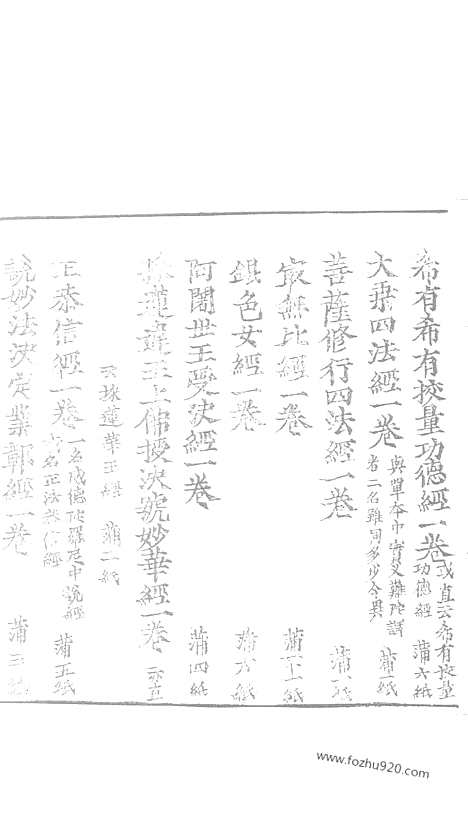 希有希有挍量功德經一卷 或直云希有挍量
功德經 蒲六紙
大乘四法經一卷 與單本中實叉難陀譯
者二名雖同多少全異 蒲一紙
菩薩修行四法經一卷 蒲
㝡無比經一卷 蒲十一紙
銀色女經一卷 蒲六紙
阿闍世王受決經一卷 蒲四紙
採蓮違王上佛授決號妙華經一卷 亦直
云採蓮華王經 蒲二紙
正恭信經一卷 一名威德陀羅尼中說經
亦名正法恭信經 蒲五紙
說妙法決定業報經一卷 蒲三紙
www.fozhu920.com